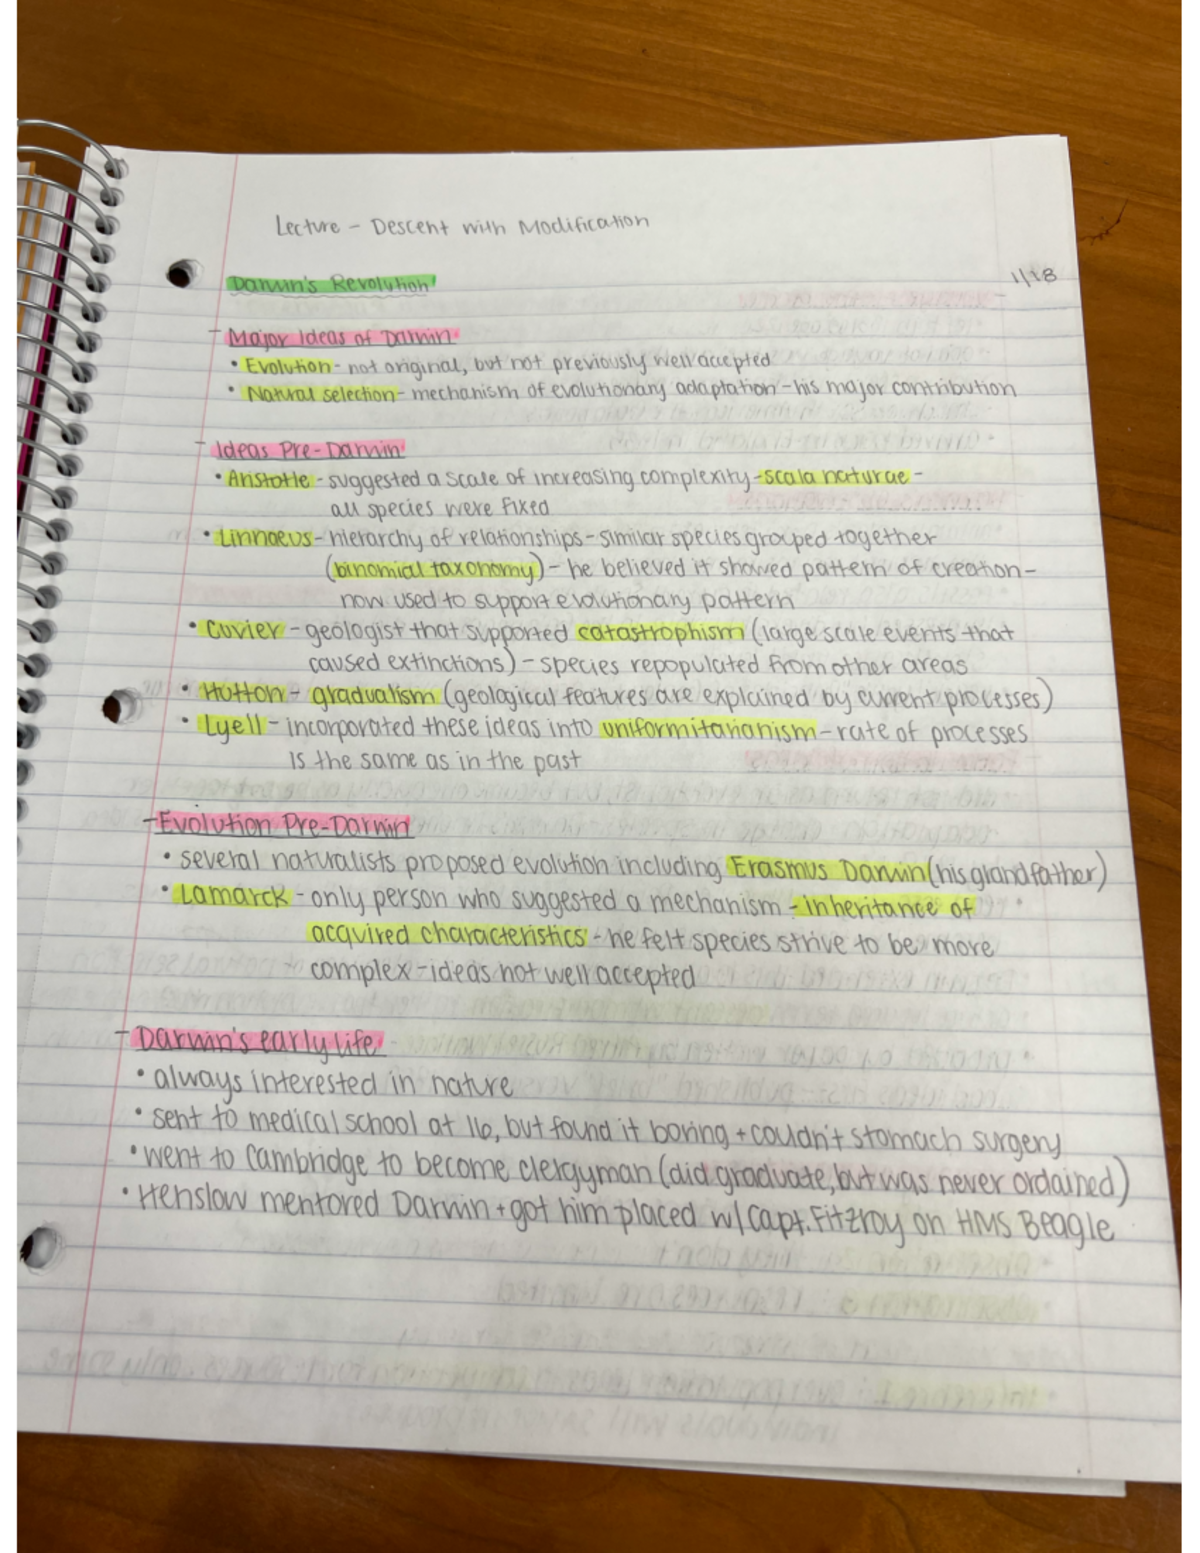 Lecture - Descent with Modification
Darwin's Revolution
1/18
- Major Ideas of Darwin
• Evolution - not original, but not previously well accepted
• Natural selection - mechanism of evolutionary adaptation - his major contribution
- Ideas Pre-Darwin
• Aristotle - suggested a scale of increasing complexity - scala naturae -
all species were fixed
• Linnaeus - hierarchy of relationships - similar species grouped together
(binomial taxonomy) - he believed it showed pattern of creation -
now used to support evolutionary pattern
• Cuvier - geologist that supported catastrophism (large scale events that
caused extinctions) - species repopulated from other areas
• Hutton - gradualism (geological features are explained by current processes)
• Lyell - incorporated these ideas into uniformitarianism - rate of processes
is the same as in the past
- Evolution Pre-Darwin
• several naturalists proposed evolution including Erasmus Darwin (his grandfather)
• Lamarck - only person who suggested a mechanism - inheritance of
acquired characteristics - he felt species strive to be more
complex - ideas not well accepted
- Darwin's early life
• always interested in nature
• sent to medical school at 16, but found it boring + couldn't stomach surgery
• went to Cambridge to become clergyman (did graduate, but was never ordained)
• Henslow mentored Darwin + got him placed w/ Capt. Fitzroy on HMS Beagle